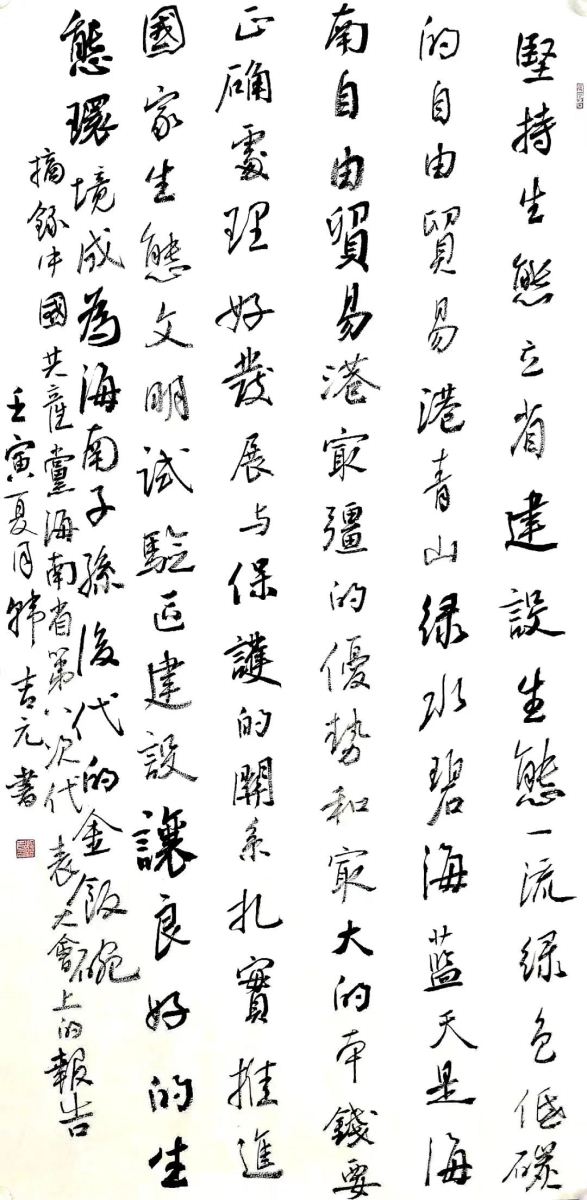 堅持生態立省建設生態一流绿色低碳
的自由貿易港青山绿水碧海藍天是海
南自由貿易港寂疆的優勢和寂大的本錢要
正确處理好發展与保護的關系扎實推進
國家生態文明試驗區建設讓良好的生
態環境成為海南子孫後代的金飯碗
摘錄中國共產黨海南省第八次代表大會上的報告
壬寅夏月韩吉元書